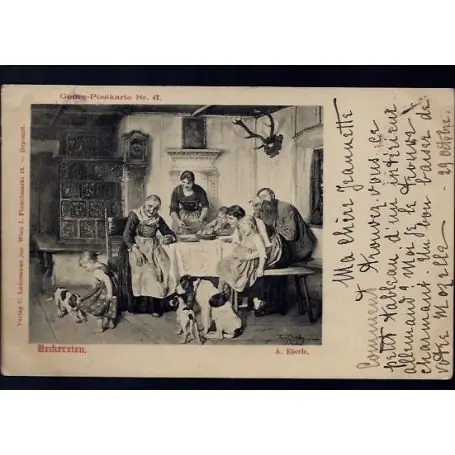 Genre-Postkarte Nr. 47.
Verlag C. Ledermann jun. Wien I. Fleischmarkt 12. — Deponirt.
Neckereien.
A. Eberle.
Ma chère Jeannette
Comment trouvez-vous ce
petit tableau d'un intérieur
allemand? moi je le trouve
charmant. Un bon baiser de
votre Mozelle - 29 Octobre.